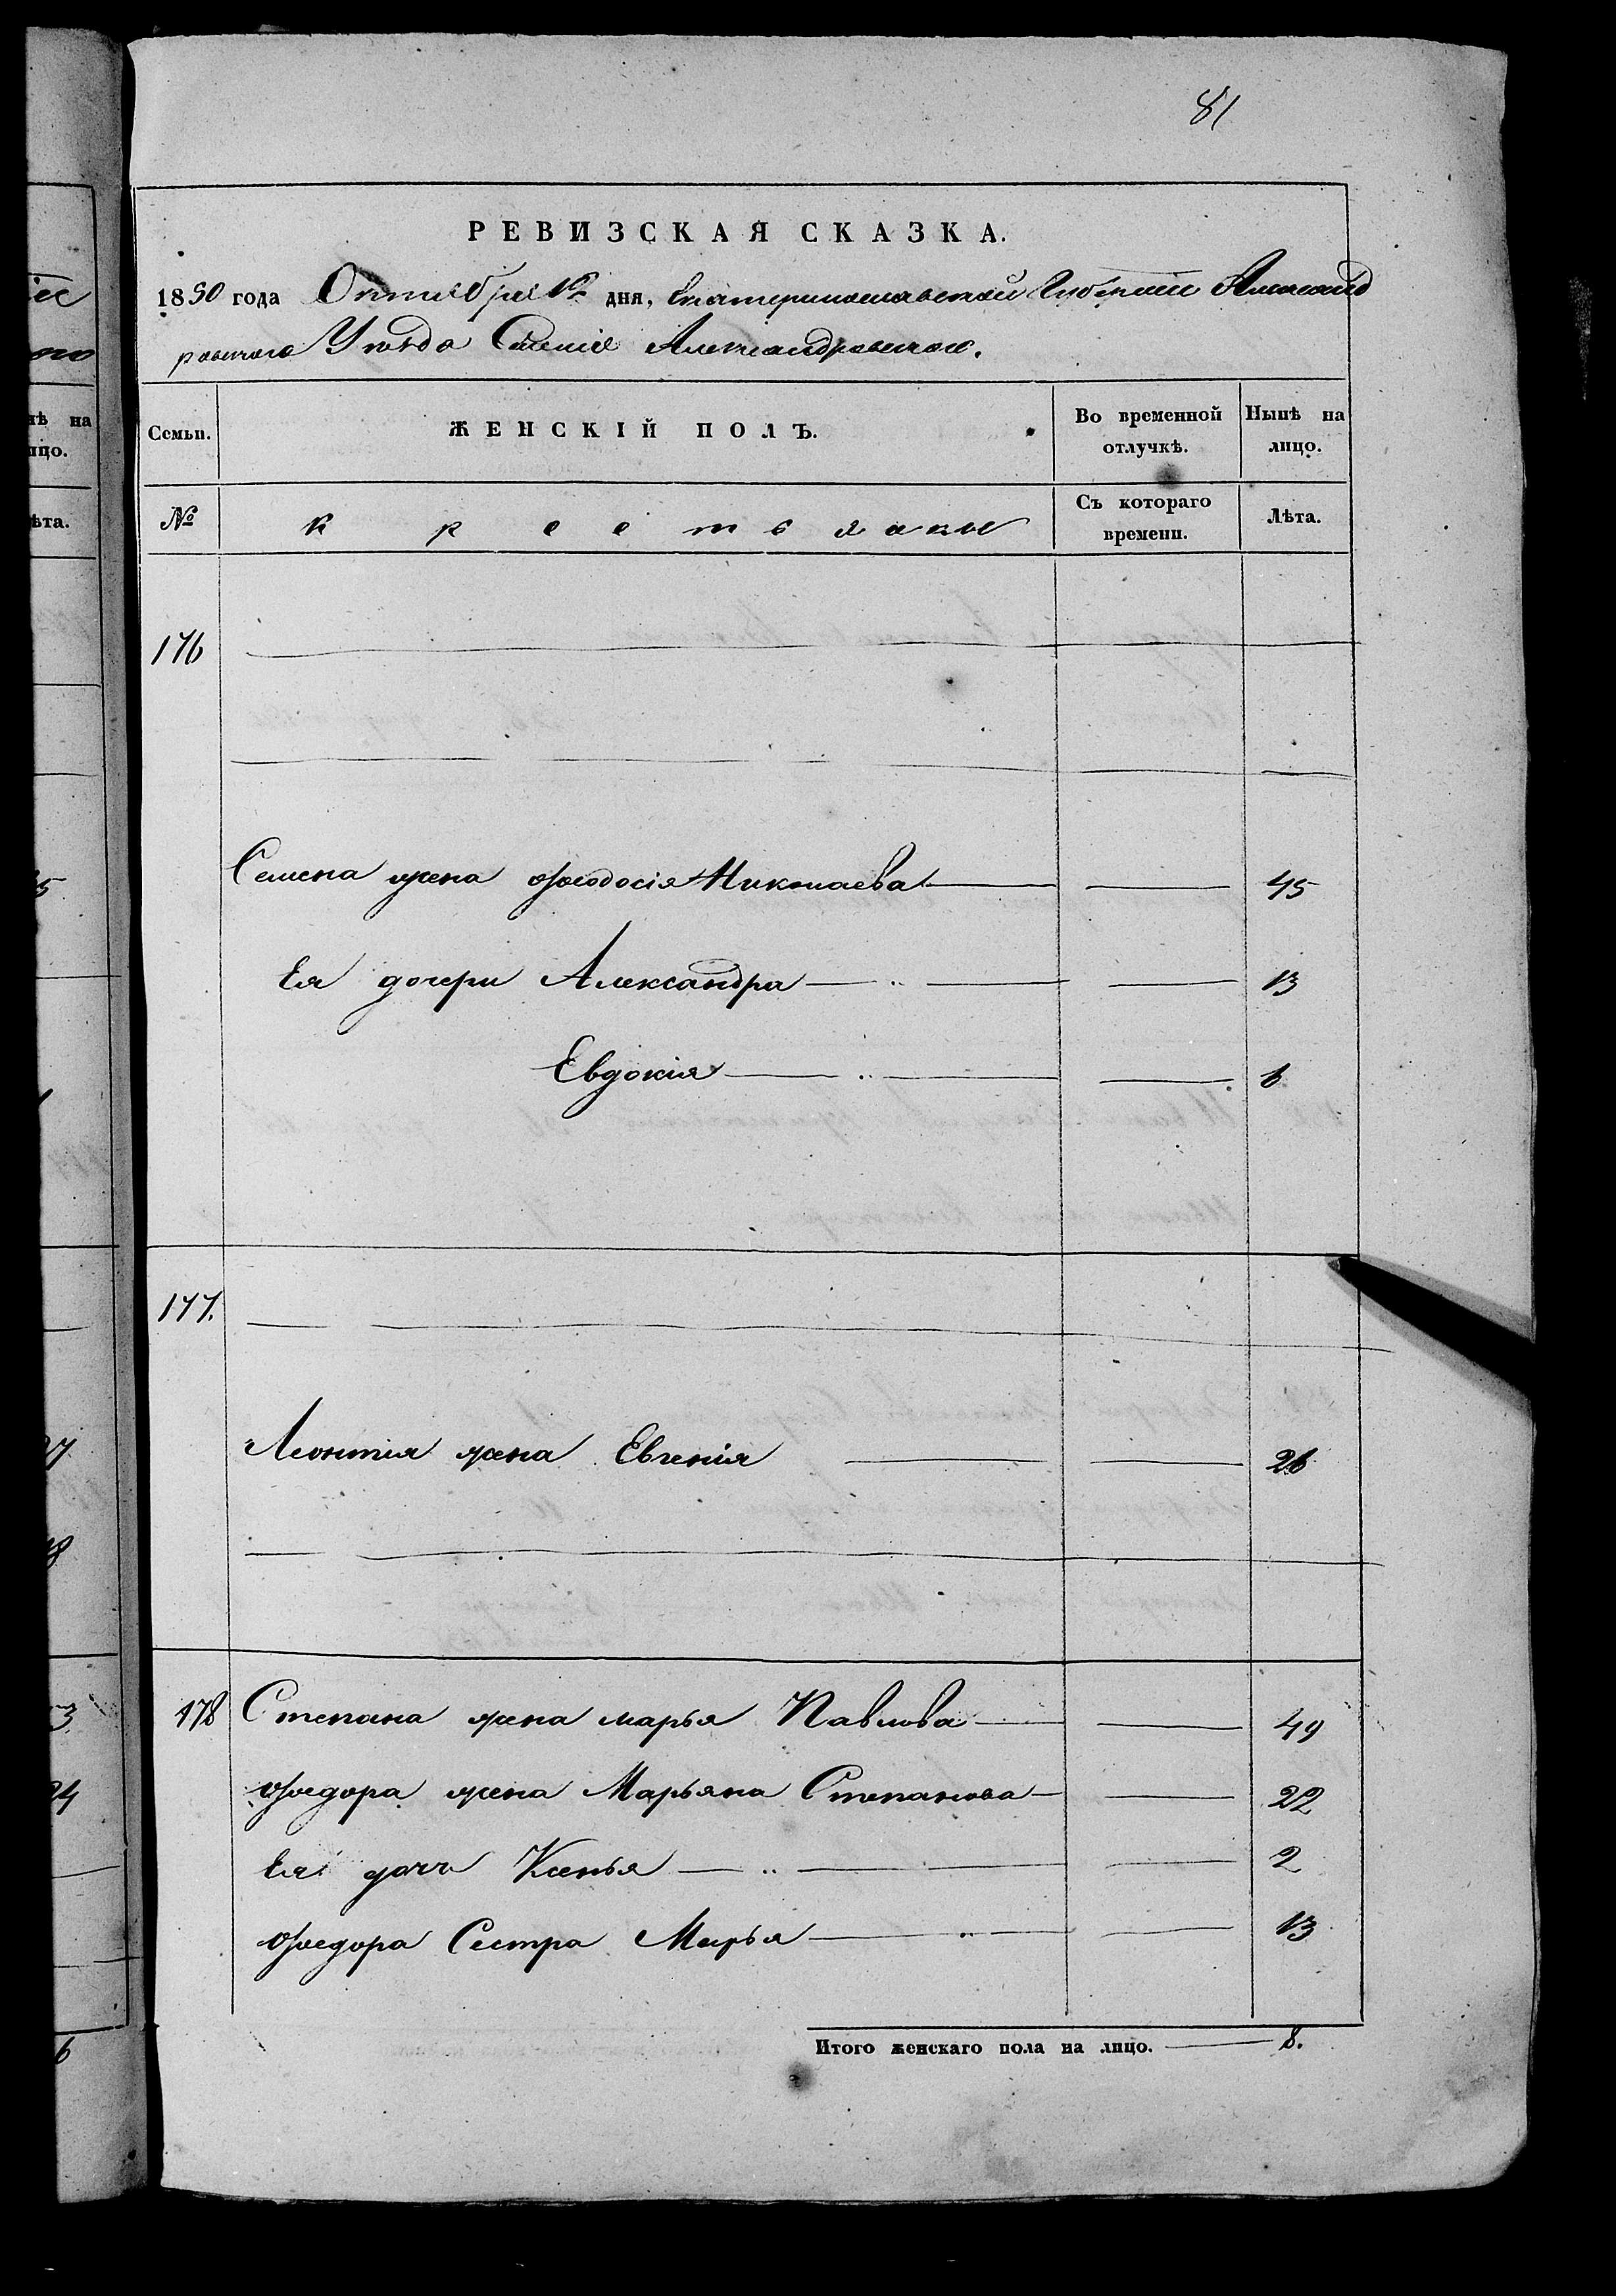 81
РЕВИЗСКАЯ СКАЗКА.
1850 года Октября 1го дня, Екатеринославской Губернии Александ
ровскаго Уѣзда Селенія Александровская.
Семьи. ЖЕНСКІЙ ПОЛЪ. Во временной отлучкѣ. Нынѣ на лицо.
№ крестьянки Съ котораго времени. Лѣта.
176
Семена жена Ѳеодосія Николаева 45
Ея дочери Александра 13
Евдокія 6
177.
Леонтія жена Евгенія 26
178 Степана жена марья Павлова 49
Ѳедора жена Марьяна Степанова 22
Ея дочь Ксенья 2
Ѳедора Сестра Марья 13
Итого женскаго пола на лицо. 8.